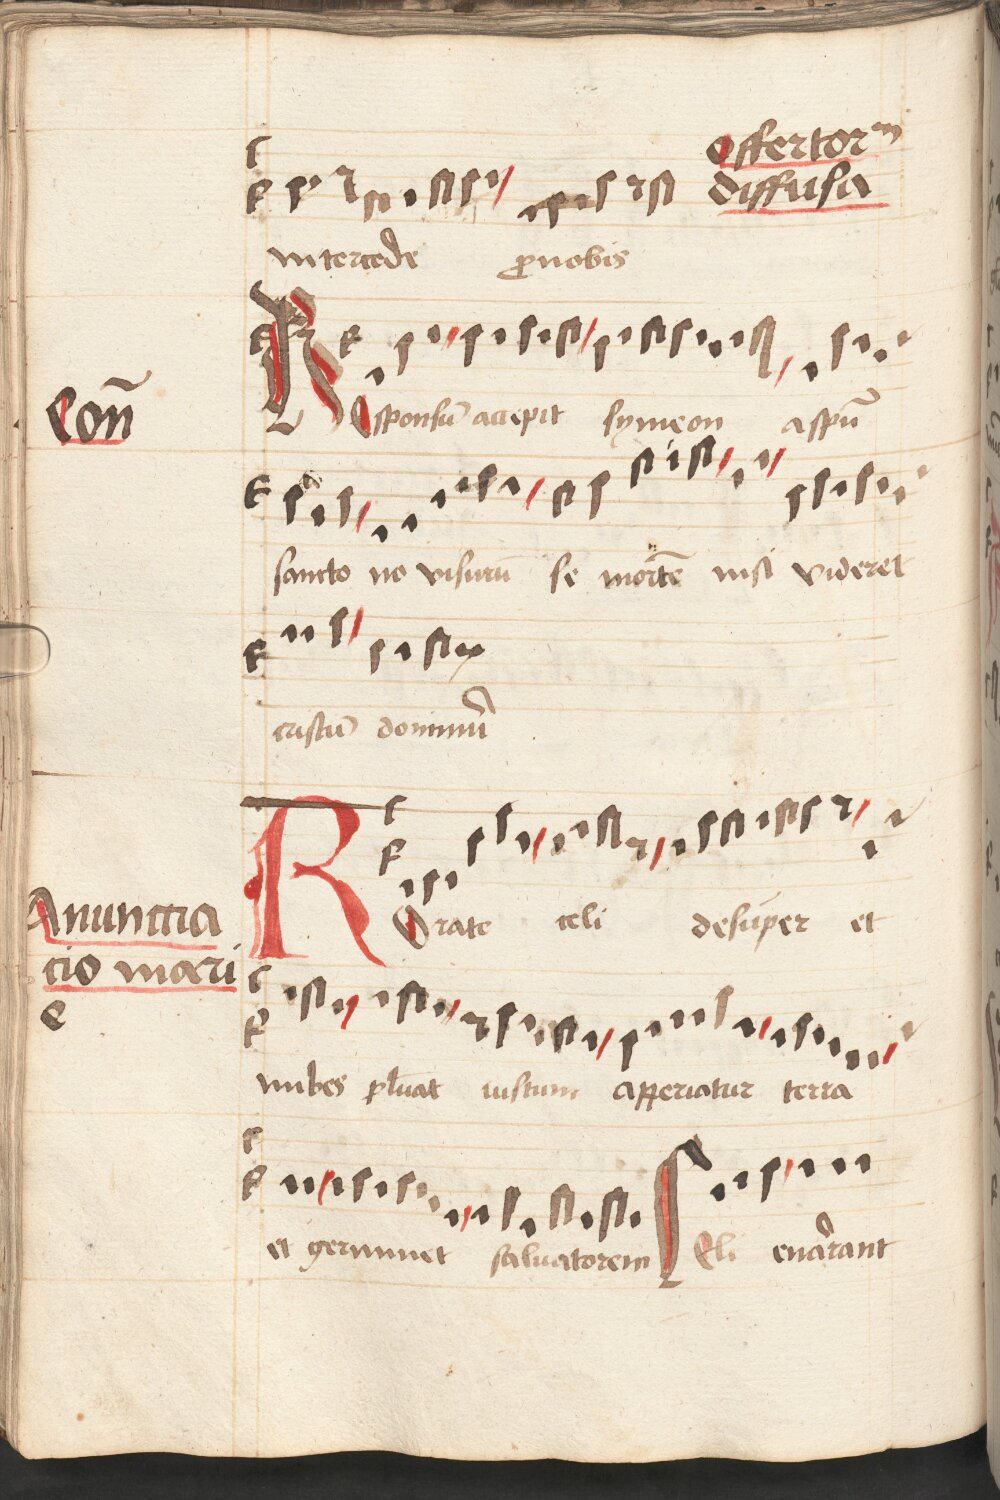 Offertorm
diffusa
intercede pro nobis
Con̄
REsponsū accepit symeon a spū
sancto nō visurū se mortē nisi videret
cristū dominū
Anuncia
cio mari
e
ROrate celi desuper et
nubes pluāt iustum apperiatur terra
et germinet saluatorem Celi enarrant